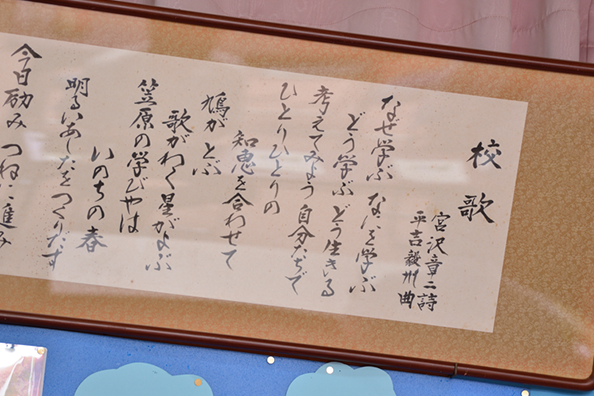 校歌
宮沢章二詩
平吉毅州曲
なぜ学ぶ なにを学ぶ
どう学ぶ どう生きる
考えてみよう 自分たちで
ひとりひとりの
知恵を合わせて
鳩がとぶ
歌がわく 星がよぶ
笠原の学びやは
いのちの春
明るいあしたをつくりだす
今日励み つねに進み